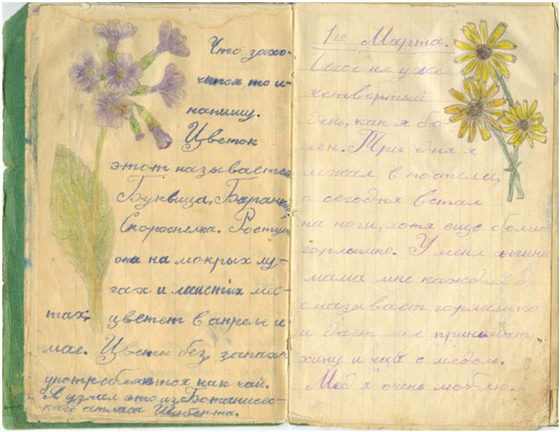 Что захо-
чится то и
напишу.
Цветок
этот называется
Буквица, Баранчик
Скороспелка. Растут
она на мокрых лу-
гах и мшистых мес-
тах, цветет в апреле и
мае. Цветы без запаха
употребляются как чай.
Я узнал это из Ботаничес-
каго атласа Шуберта.
1го Марта.
Сегодня уже
четвертый
день, как я бо-
лен. Три дня я
лежал в постели,
а сегодня встал
на ноги, хотя еще болит
горлышко. У меня ангина
мама мне каждый
смазывает горлышко
и дает мне принимать
хину и чай с медом.
Мёд я очень люблю.